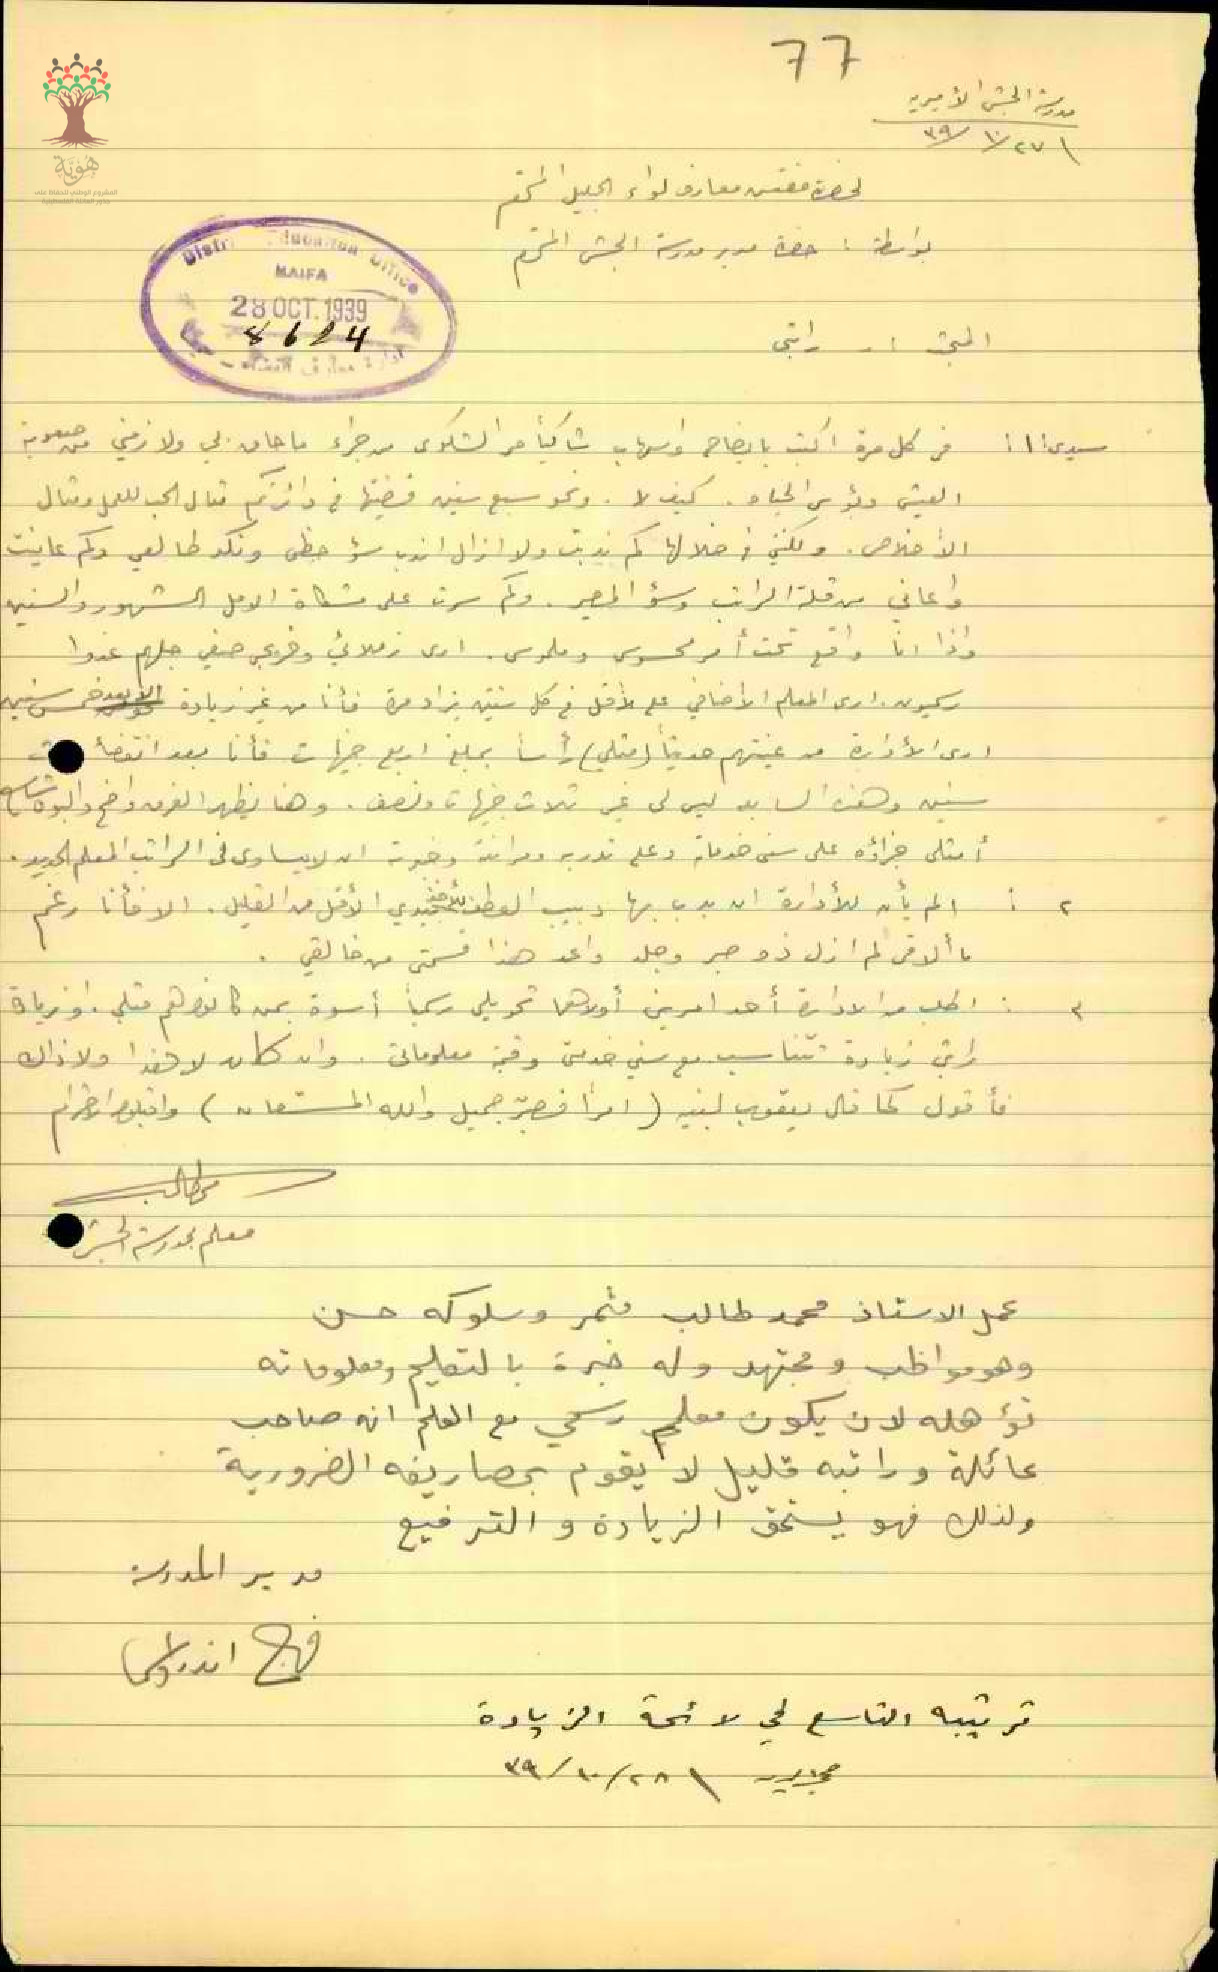 77
مدرسة الجش الأميرية
٣٩/١٠/٢٧
لحضرة مفتش معارف لواء الجليل المحترم
بواسطة : حضرة مدير مدرسة الجش المحترم
هُوِيَّة
District Education Office
HAIFA
28 OCT. 1939
8624
المبحث :- راتبي
سيدي ١ : في كل مرة اكتب بايضاح واسهاب شاكياً مر الشكوى من جراء ما حاق بي ولازمني من صعوبة
العيش وبؤس الحياه . كيف لا . ونحو سبع سنين قضيتها في دائرتكم مثال الحب للعمل ومثال
الأخلاص . ولكنني في خلالها كم ندبت ولا ازال اندب سؤ حظي ونكد طالعي وكم عانيت
واعاني من قلة الراتب وسؤ المصير . وكم سرت على مشكاة الامل الشهور والسنين
واذا انا واقع تحت أمر محسوس وملموس . ارى زملائي وخريجي صفي جلهم غدوا
رسميون . ارى المعلم الأضافي على الأقل في كل سنتين يزاد مرة فأنا من غير زيادة خمس سنين
ارى الأدارة من عينتهم حديثاً (مثلي) رأساً بمبلغ اربع جنيهات فأنا بعد انقضاء
سنين وهذه السابعه ليس لي غير ثلاث جنيهات ونصف . وهنا يظهر الفرق واضح والبون شاسع
أمثلي جزاؤه على سني خدماته وعلى تدربه ومرانته وخبرته ان لا يساوى في الراتب المعلم الجديد .
٢ : الم يأن للأدارة ان يدب بها دبيب العطف الأقل من القليل . الا فأنا رغم
ما ألاقي لم ازل ذو صبر وجلد واعد هذا قسمتي من خالقي .
٣ : اطلب من الادارة أحد امرين أولاهما تحويلي رسمياً أسوة بمن كانوا هم مثلي . او زيادة
راتبي زيادة تتناسب مع سني خدمتي وقيمة معلوماتي . وان كان لا هذا ولا ذاك
فأقول كما قال يعقوب لبنيه ( امراً فصبرٌ جميل والله المستعان ) واقبلوا احترام
م طالب
معلم بمدرسة الجش
عمل الاستاذ محمد طالب مثمر وسلوكه حسن
وهو مواظب ومجتهد وله خبرة بالتعليم ومعلوماته
تؤهله لان يكون معلم رسمي مع العلم انه صاحب
عائلة وراتبه قليل لا يقوم بمصاريفه الضرورية
ولذلك فهو يستحق الزيادة والترفيع
مدير المدرسة
فرح اندراوس
ترتيبه التاسع في لائحة الزيادة
٣٩/١٠/٢٨